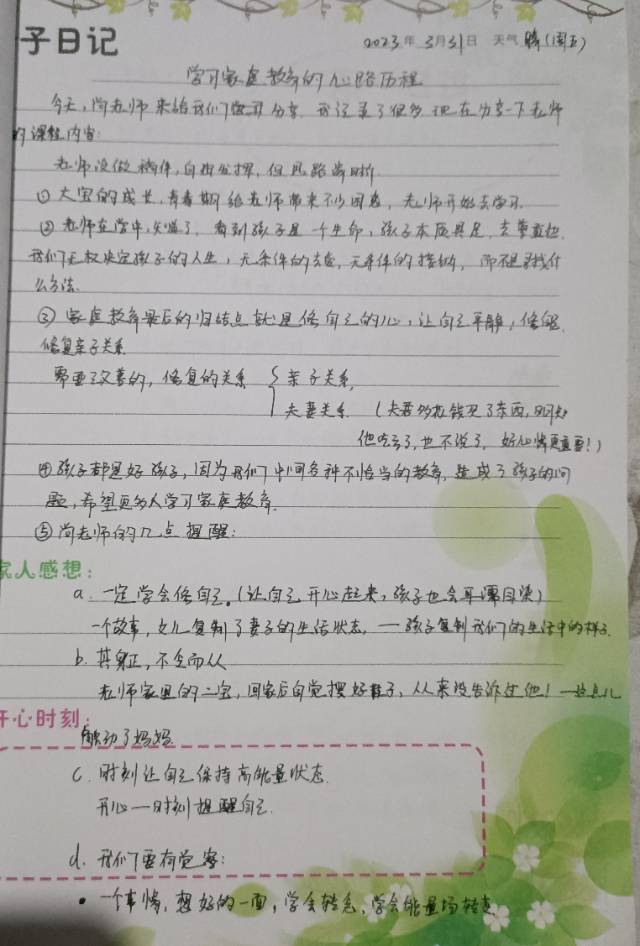 子日记
2023年 3月31日 天气 晴(周五)
学习家庭教育的心路历程
今天,尚老师来给我们 分享,我记录了很多 现在分享一下老师
的课程内容:
老师没做稿件,自由发挥,但思路清晰
① 大宝的成长,青春期给老师带来不少困惑,老师开始去学习.
② 老师在学中,觉醒了,看到孩子是一个生命,孩子本质具足,去掌直也
我们无权决定孩子的人生,无条件的去爱,无条件的接纳,而不是找什
么方法.
③ 家庭教育最后的归结点就是修自己的心,让自己平静,修
修复亲子关系
需要改善的,修复的关系 { 亲子关系,
夫妻关系 (夫妻 钱买了东西,明知
他吃亏了,也不说了,好心情更重要!)
④ 孩子都是好孩子,因为我们中间各种不恰当的教育,造成了孩子的问
题,希望更多人学习家庭教育.
⑤ 尚老师的几点提醒:
家人感想:
a. 一定学会修自己。(让自己开心起来,孩子也会耳濡目染)
一个故事,女儿复制了妻子的生活状态,—孩子复制我们的生活中的样子.
b. 其身正,不令而从
老师家里的二宝,回家后自觉摆好鞋子,从来没告诉过他!一些点儿
开心时刻:
触动了妈妈
C. 时刻让自己保持高能量状态.
开心—时刻提醒自己.
d. 我们要有觉察:
• 一个事情,想好的一面,学会转念,学会能量场转变